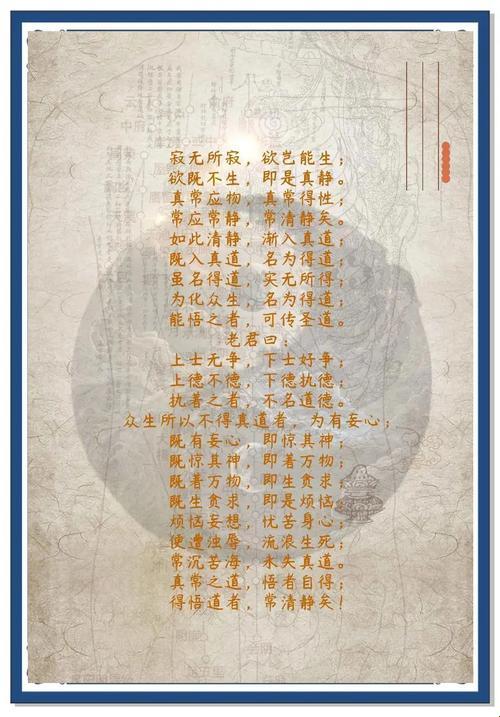 寂无所寂，欲岂能生；
欲既不生，即是真静。
真常应物，真常得性；
常应常静，常清静矣。
如此清静，渐入真道；
既入真道，名为得道；
虽名得道，实无所得；
为化众生，名为得道；
能悟之者，可传圣道。
老君曰：
上士无争，下士好争；
上德不德，下德执德；
执着之者，不名道德。
众生所以不得真道者，为有妄心；
既有妄心，即惊其神；
既惊其神，即着万物；
既着万物，即生贪求；
既生贪求，即是烦恼，
烦恼妄想，忧苦身心；
使遭浊辱，流浪生死；
常沉苦海，永失真道。
真常之道，悟者自得；
得悟道者，常清静矣！